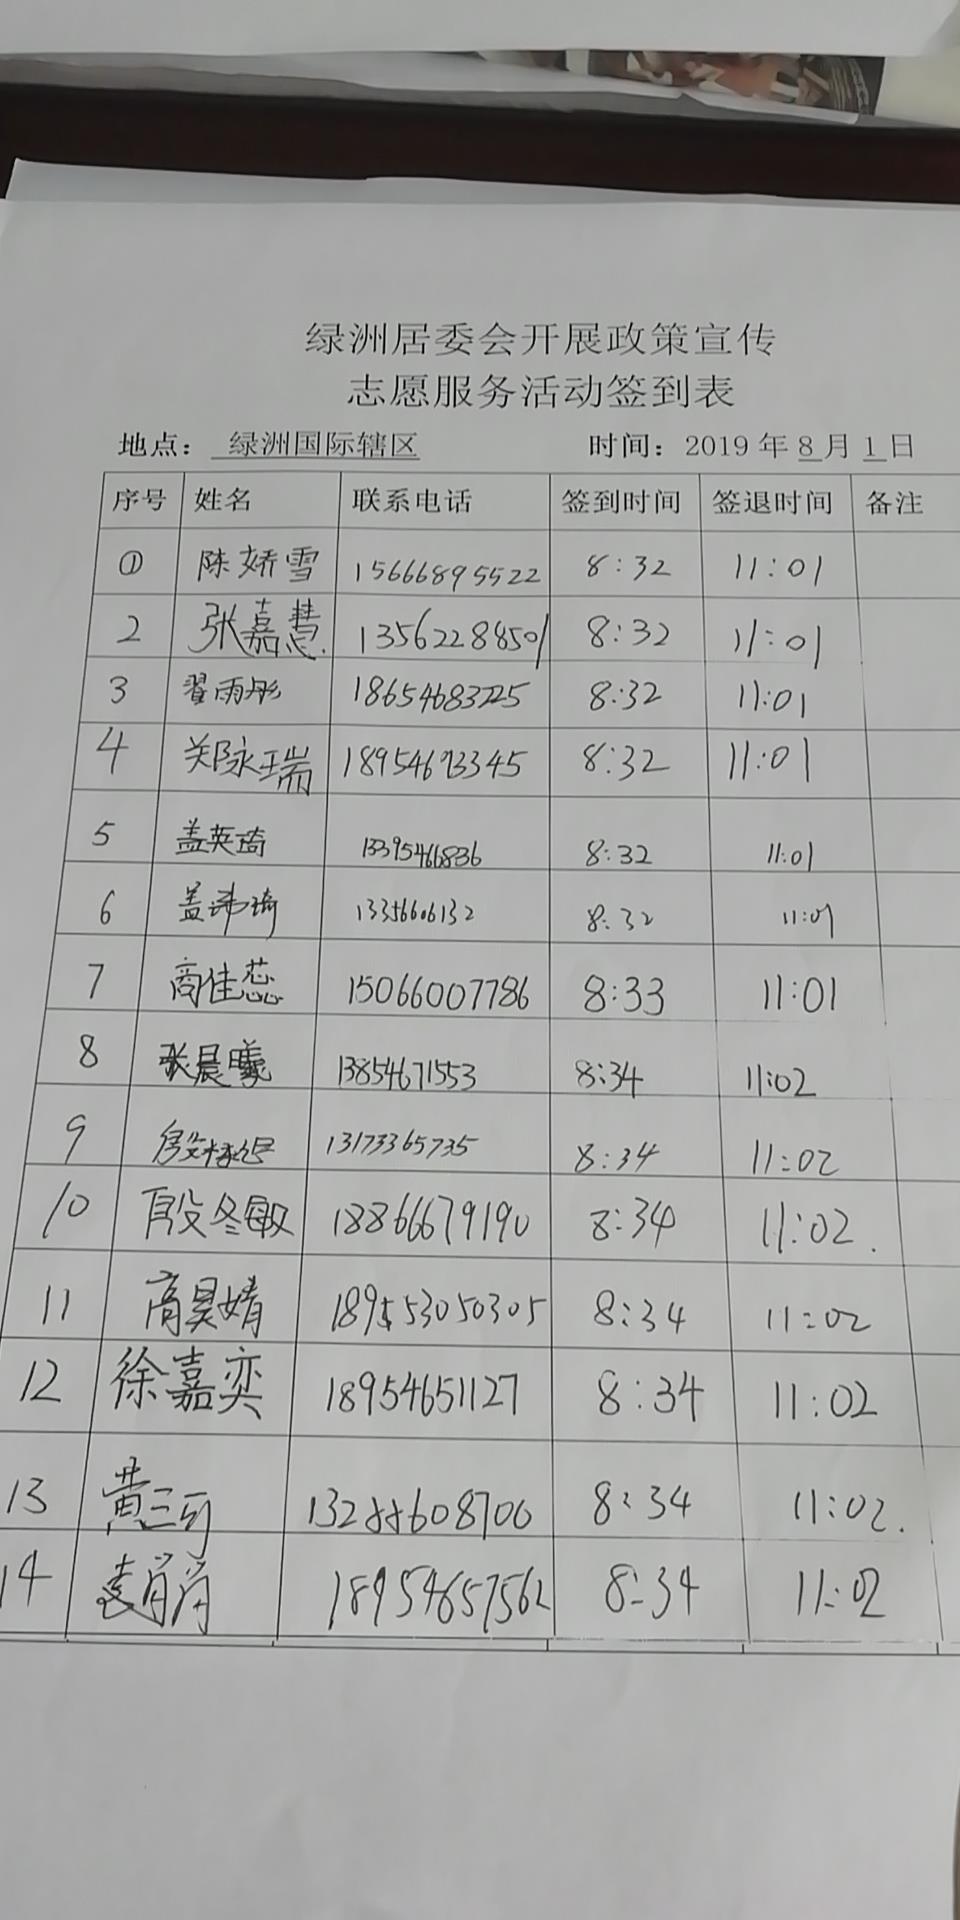 绿洲居委会开展政策宣传
志愿服务活动签到表
地点： 绿洲国际辖区 时间：2019 年 8 月 1 日
序号 姓名 联系电话 签到时间 签退时间 备注
① 陈娇雪 15666895522 8:32 11:01
2 张嘉慧 13562288501 8:32 11:01
3 翟雨彤 18654683225 8:32 11:01
4 郑咏瑞 18954693345 8:32 11:01
5 盖英琦 13395466836 8:32 11:01
6 盖琦 13356606132 8:32 11:01
7 商佳蕊 15066007786 8:33 11:01
8 张晨曦 13854671553 8:34 11:02
9 13173365735 8:34 11:02
10 殷冬敏 18866679190 8:34 11:02.
11 商昊婧 189553050305 8:34 11:02
12 徐嘉奕 18954651127 8:34 11:02
13 黄三可 8:34 11:02.
14 肖肖 18954657562 8:34 11:02